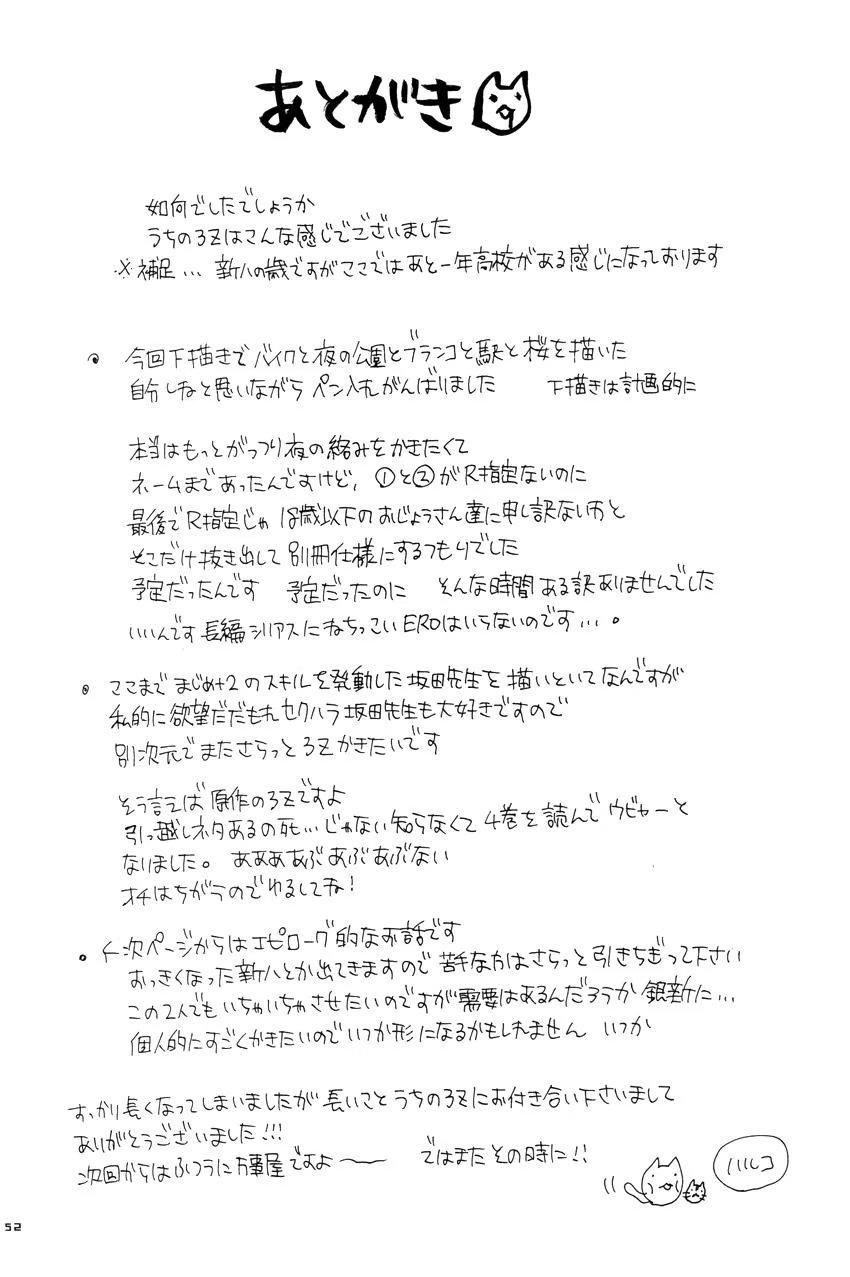 あとがき
如何でしたでしょうか
うちの3Zはこんな感じでございました
※補足… 新八の歳ですがここではあと一年高校がある感じになっております
今回下描きでバイクと夜の公園とブランコと駅と桜を描いた
自分しねと思いながらペン入れがんばりました 下描きは計画的に
本当はもっとがっつり夜の絡みをかきたくて
ネームまであったんですけど、①と②がR指定ないのに
最後でR指定じゃ18歳以下のおじょうさん達に申し訳ないわと
そこだけ抜き出して別冊仕様にするつもりでした
予定だったんです 予定だったのに そんな時間ある訳ありませんでした
いいんです長編シリアスにねちっこいEROはいらないのです…。
ここまでまじめ+2のスキルを発動した坂田先生を描いといてなんですが
私的に欲望だだもれセクハラ坂田先生も大好きですので
別次元でまたさらっと3Zかきたいです
そう言えば原作の3Zですよ
引っ越しネタあるの死…じゃない知らなくて4巻を読んでウビャーと
なりました。 あああああぶあぶあぶない
オチはちがうのでゆるしてね!
次ページからはエピローグ的なお話です
おっきくなった新八とか出てきますので苦手な方はさらっと引きちぎって下さい
この2人でもいちゃいちゃさせたいのですが需要はあるんだろうか銀新に…
個人的にすごくかきたいのでいつか形になるかもしれません いつか
すっかり長くなってしまいましたが長いことうちの3Zにお付き合い下さいまして
ありがとうございました!!!
次回からはふつうに万事屋ですよ〜 ではまたその時に!!
ハルコ
52